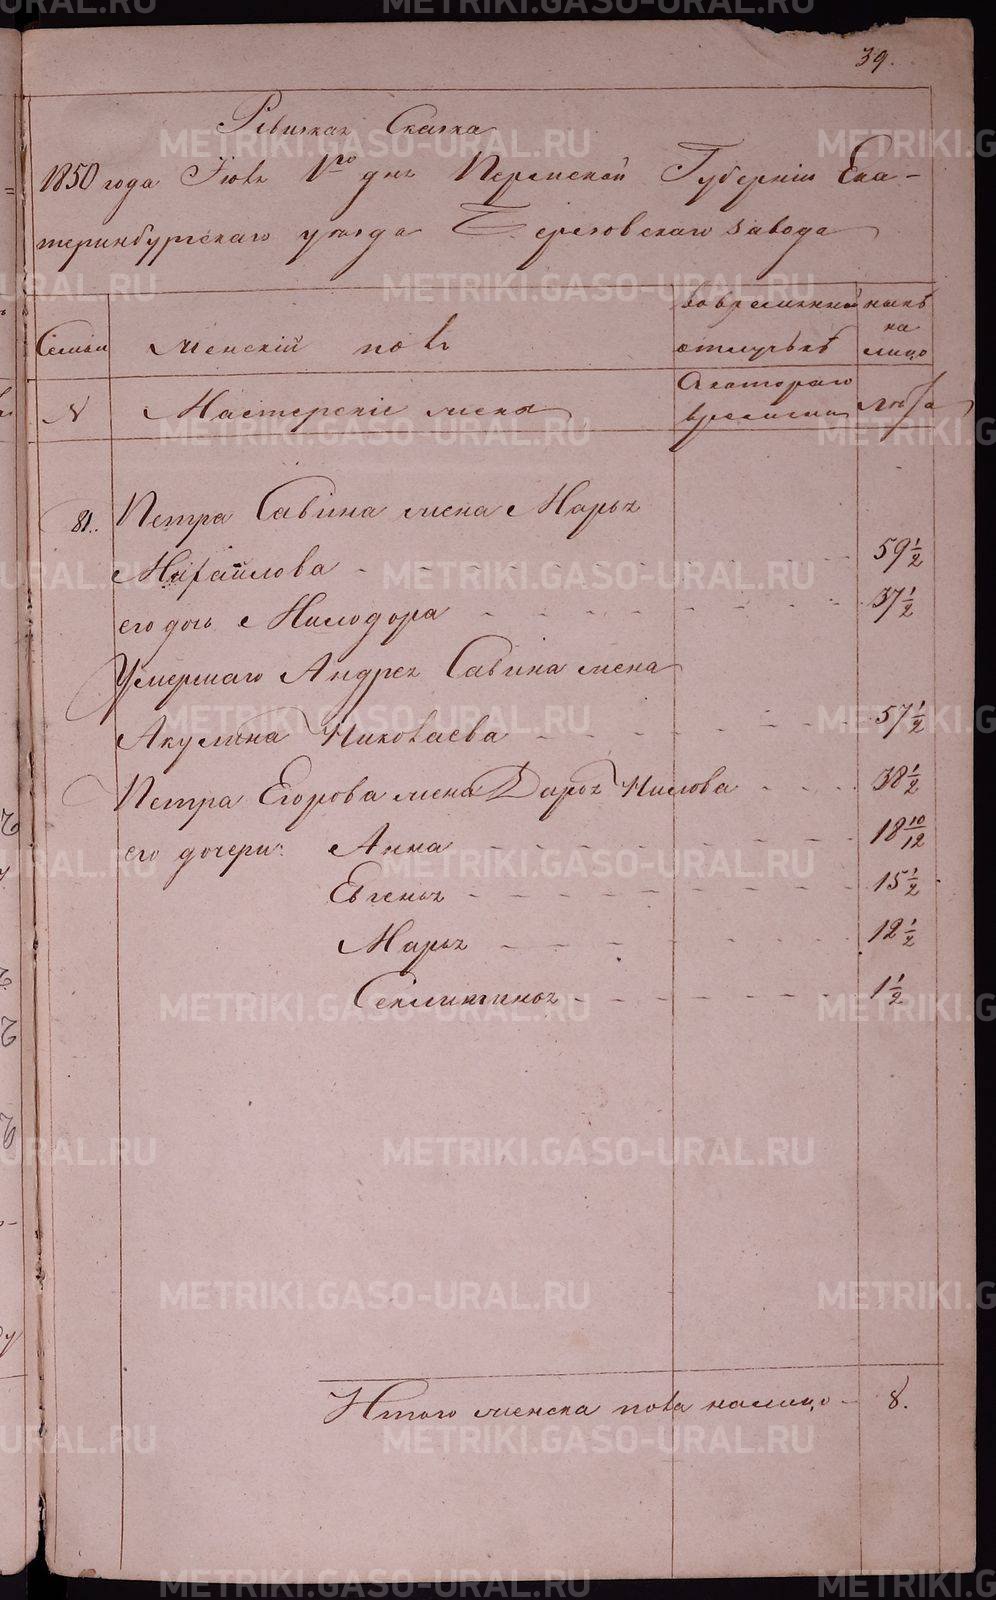 39.
Ревизкая Сказка
1850 года Іюля 1го дня Пермской Губерніи Ека-
теринбургскаго уѣзда Березовскаго завода
Семьи
Женскій полъ
во временной отлучкѣ
нынѣ на лицо
N
Мастерскіе жена
Скотораго времени
лѣта
81.
Петра Савина жена Марья
Михайлова 59 1/2
его дочь Нимодора 37 1/2
Умершаго Андрея Савина жена
Акулина Николаева 57 1/2
Петра Егорова жена Дарья Нилова 38 1/2
его дочери: Анна 18 10/12
Евгенья 15 1/2
Марья 12 1/2
Секлитинья 1 1/2
Итого женска пола налицо - 8.
METRIKI.GASO-URAL.RU